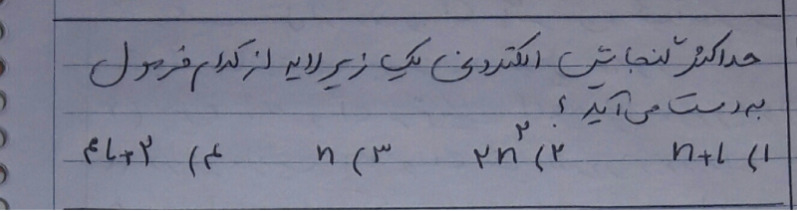 حداکثر گنجایش الکترونی یک زیر لایه از کدام فرمول
به دست می‌آید ؟
۱) n+l ۲) ۲n² ۳) n ۴) ۴l+۲